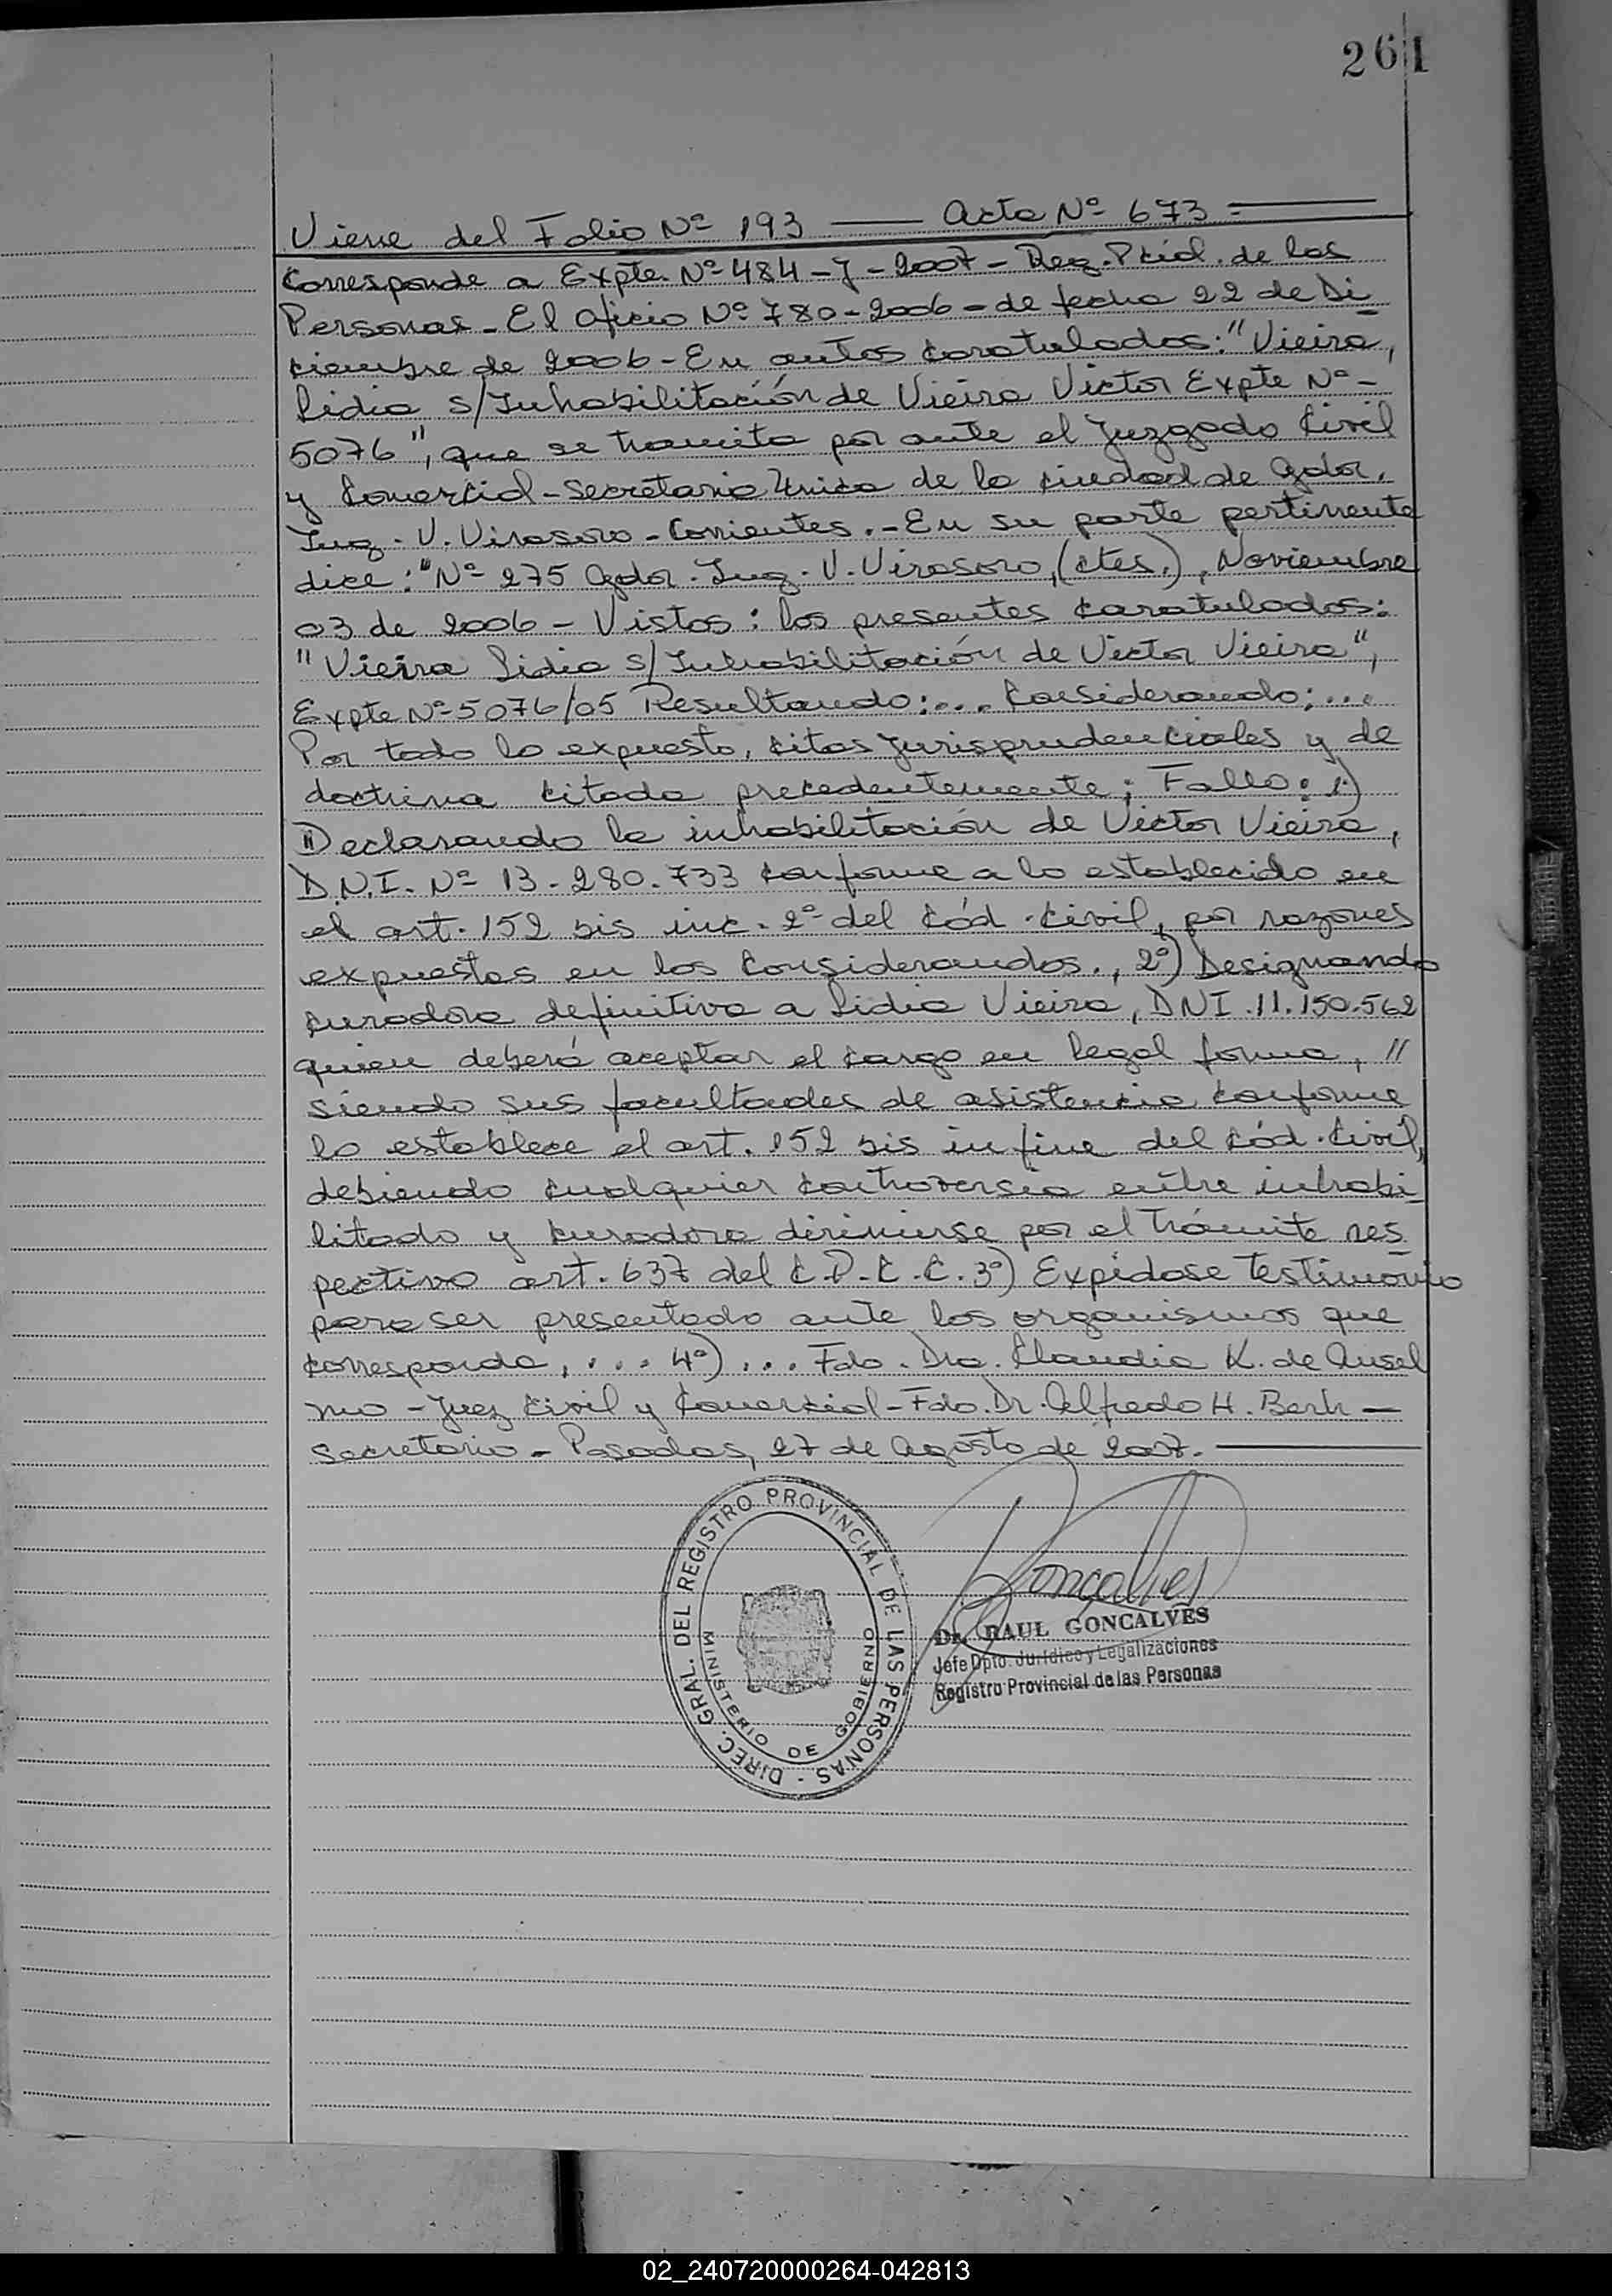 261
Viene del Folio Nº 193 — Acta Nº 673 =
Corresponde a Expte. Nº 484-J-2007- Reg. Pcial. de las
Personas - El oficio Nº 780-2006 - de fecha 22 de Di
ciembre de 2006 - En autos caratulados: "Vieira,
Lidia s/Inhabilitación de Vieira Victor Expte Nº-
5076", que se tramita por ante el Juzgado Civil
y Comercial - Secretaria Unica de la ciudad de Gdor.
Ing. V. Virasoro - Corrientes. - En su parte pertinente
dice: "Nº 275 Gdor. Ing. V. Virasoro, (Ctes.), Noviembre
03 de 2006 - Vistos: los presentes caratulados:
"Vieira Lidia s/Inhabilitación de Victor Vieira",
Expte Nº 5076/05 Resultando:... Considerando:...
Por todo lo expuesto, citas jurisprudenciales y de
doctrina citada precedentemente; Fallo: 1)
"Declarando la inhabilitación de Victor Vieira,
D.N.I. Nº 13.280.733 conforme a lo establecido en
el art. 152 bis inc. 2º del Cód. Civil, por razones
expuestas en los Considerandos., 2º) Designando
curadora definitiva a Lidia Vieira, DNI. 11.150.562
quien deberá aceptar el cargo en legal forma, //
siendo sus facultades de asistencia conforme
lo establece el art. 152 bis in fine del Cód. Civil,
debiendo cualquier controversia entre inhabi-
litado y curadora dirimirse por el trámite res
pectivo art. 637 del C.P.C.C. 3º) Expidase testimonio
para ser presentado ante los organismos que
corresponda, ... 4º) ... Fdo. Dra. Claudia K. de Ansel
mo - Juez Civil y Comercial - Fdo. Dr. Alfredo H. Berh —
Secretario - Posadas, 27 de Agosto de 2007. —
DIREC. GRAL. DEL REGISTRO PROVINCIAL DE LAS PERSONAS -
MINISTERIO DE GOBIERNO
Goncalves
Dr. RAUL GONCALVES
Jefe Dpto. Jurídico y Legalizaciones
Registro Provincial de las Personas
02_240720000264-042813